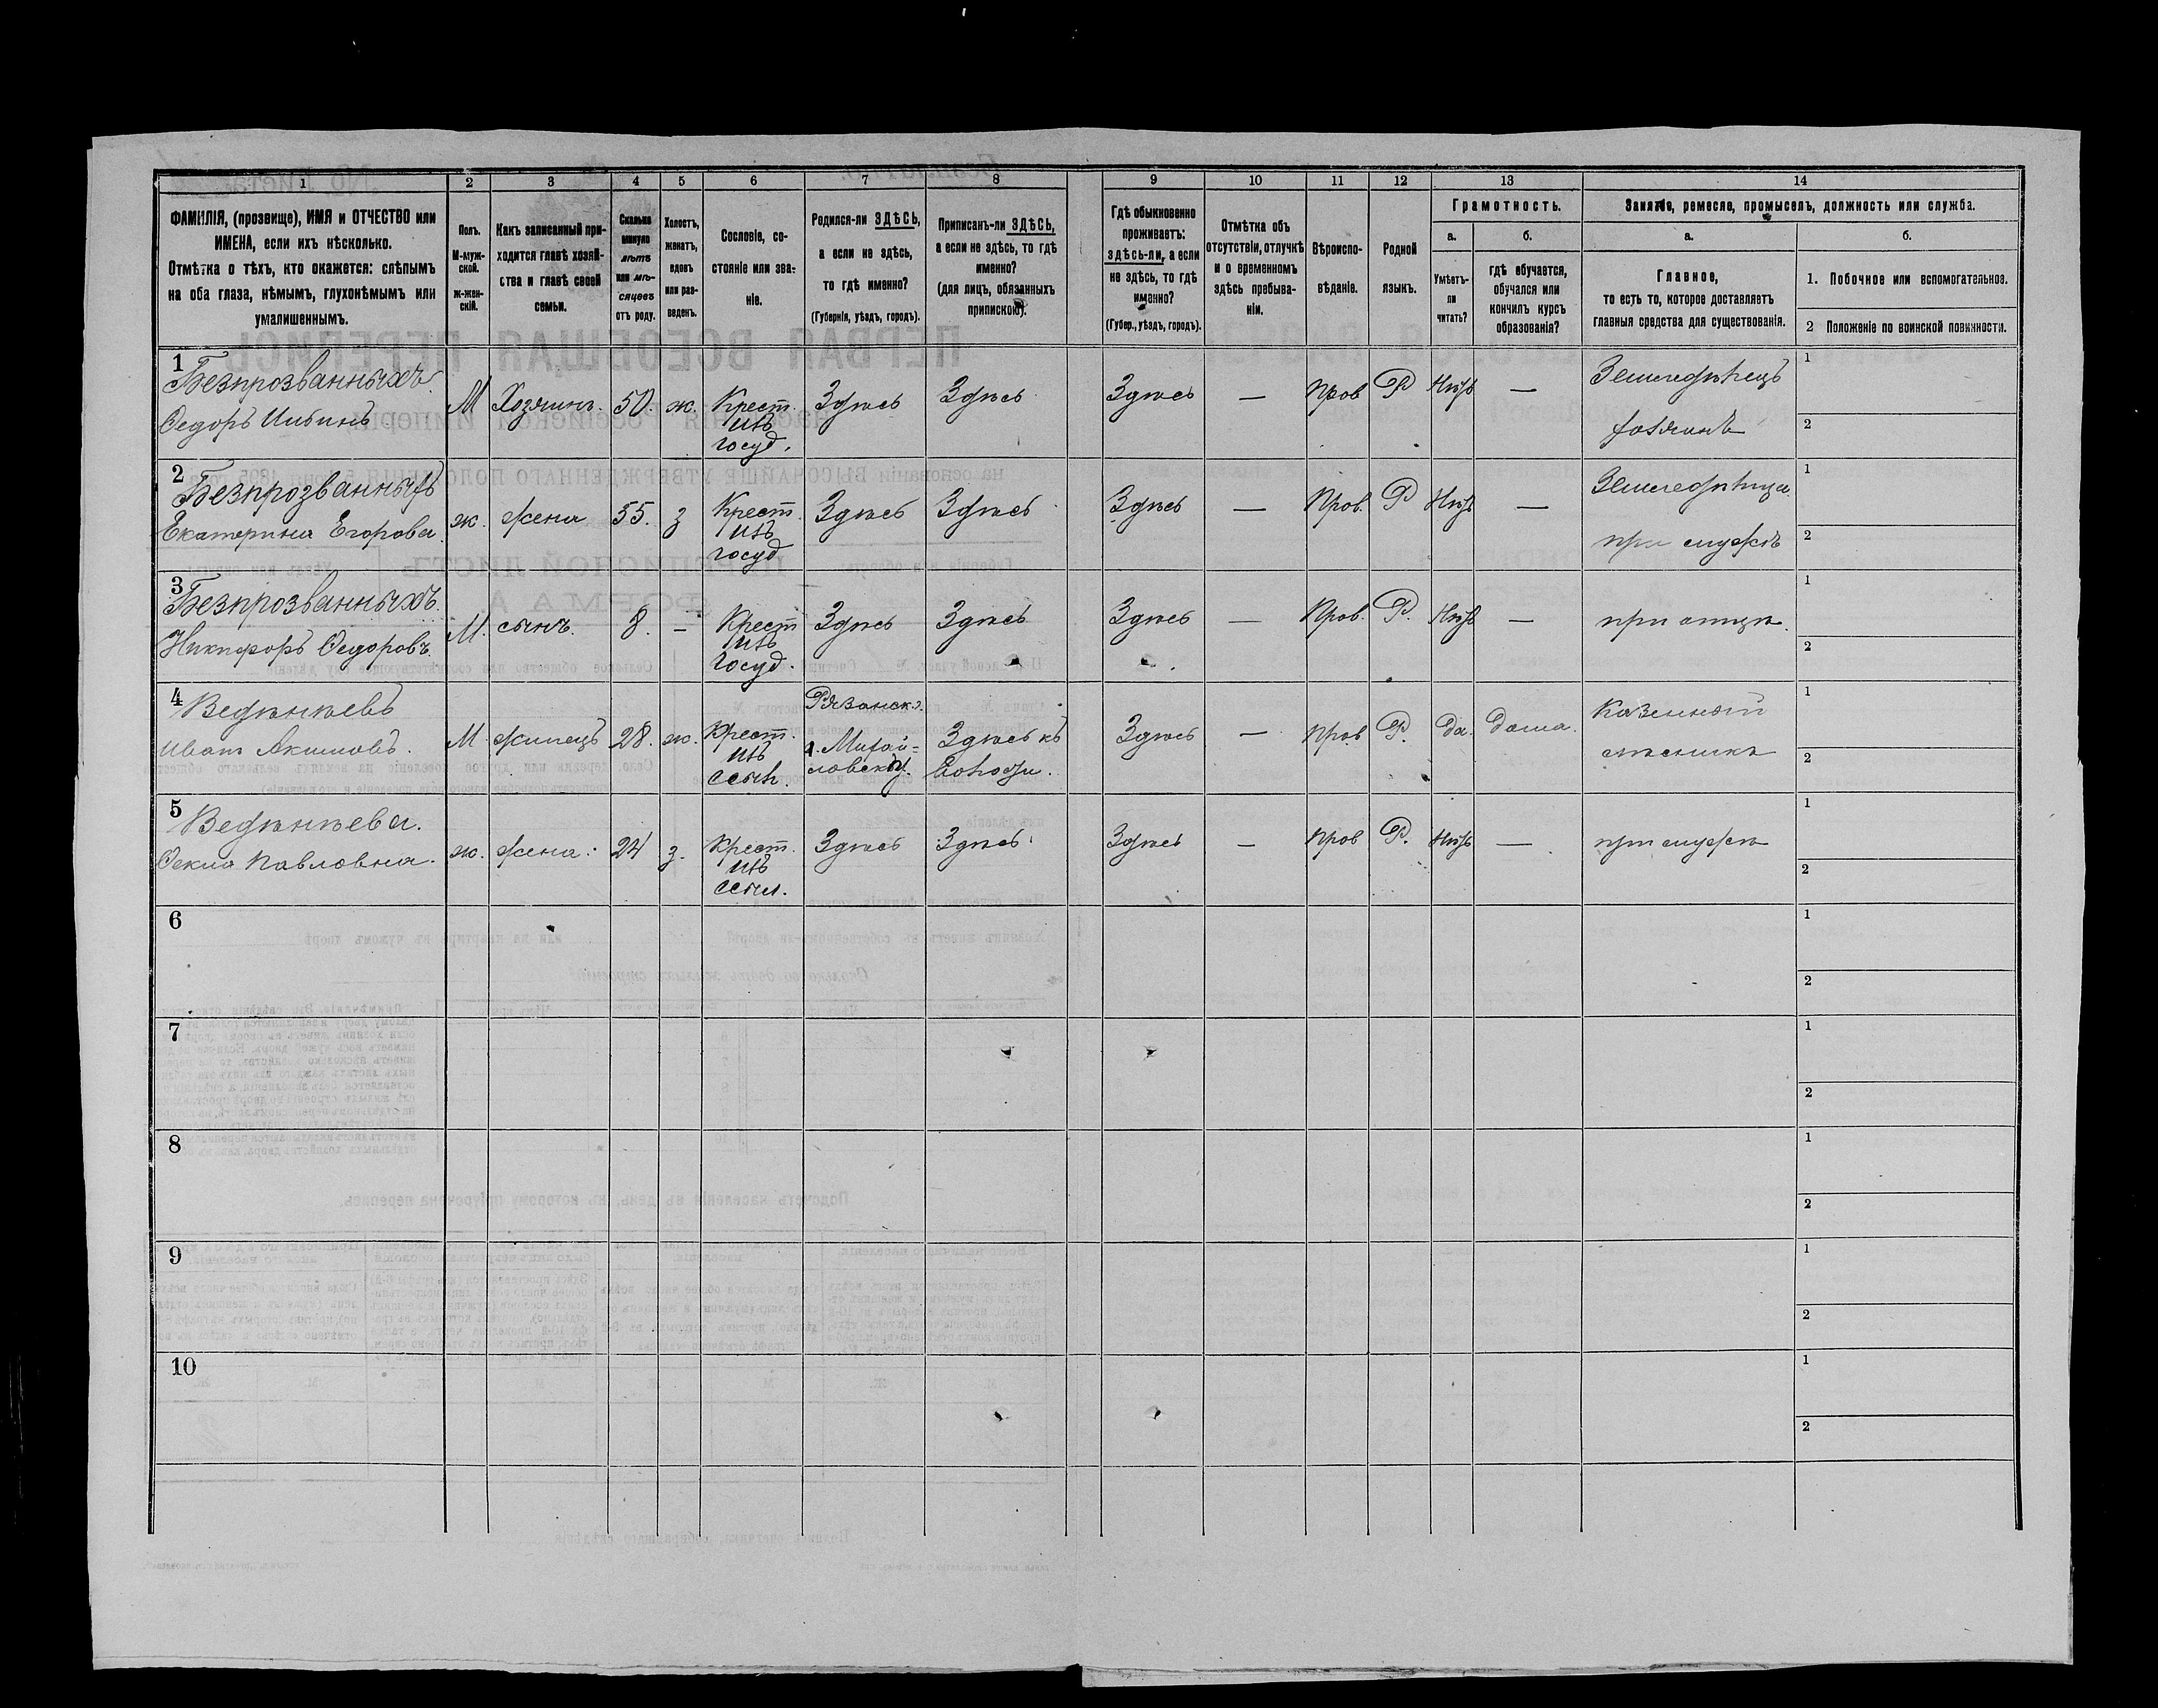 1 2 3 4 5 6 7 8 9 10 11 12 13 14
ФАМИЛІЯ, (прозвище), ИМЯ и ОТЧЕСТВО или
ИМЕНА, если ихъ нѣсколько.
Отмѣтка о тѣхъ, кто окажется: слѣпымъ
на оба глаза, нѣмымъ, глухонѣмымъ или
умалишеннымъ.
Полъ.
М-муж-
ской.
ж-жен-
скій.
Какъ записанный при-
ходится главѣ хозяй-
ства и главѣ своей
семьи.
Сколько
минуло
лѣтъ
или мѣ-
сяцевъ
отъ роду.
Холостъ,
женатъ,
вдовъ
или раз-
веденъ.
Сословіе, со-
стояніе или зва-
ніе.
Родился-ли ЗДѢСЬ,
а если не здѣсь,
то гдѣ именно?
(Губернія, уѣздъ, городъ).
Приписанъ-ли ЗДѢСЬ,
а если не здѣсь, то гдѣ
именно?
(для лицъ, обязанныхъ
припискою).
Гдѣ обыкновенно
проживаетъ:
здѣсь-ли, а если
не здѣсь, то гдѣ
именно?
(Губер., уѣздъ, городъ).
Отмѣтка объ
отсутствіи, отлучкѣ
и о временномъ
здѣсь пребыва-
ніи.
Вѣроиспо-
вѣданіе.
Родной
языкъ.
Грамотность.
а.
Умѣетъ-
ли
читать?
б.
гдѣ обучается,
обучался или
кончилъ курсъ
образованія?
Занятіе, ремесло, промыселъ, должность или служба.
а.
Главное,
то есть то, которое доставляетъ
главныя средства для существованія.
б.
1. Побочное или вспомогательное.
2 Положеніе по воинской повинности.
1
Безпрозванныхъ
Ѳедоръ
М Хозяинъ. 50. ж. Крест.
изъ
госуд.
Здѣсь Здѣсь Здѣсь — Пров Р Нѣтъ —
Земледѣлецъ
хозяинъ
1
2
2
Безпрозванныхъ
Екатерина Егорова.
ж. жена 55. з Крест.
изъ
госуд
Здѣсь Здѣсь Здѣсь — Пров. Р Нѣтъ —
Земледѣлица
при мужѣ
1
2
3
Безпрозванныхъ.
Никифоръ Ѳедоровъ.
М. сынъ. 8. — Крест
изъ
госуд.
Здѣсь Здѣсь Здѣсь — Пров. Р. Нѣтъ —
при отцѣ.
1
2
4
Веденѣевъ
Иван Акимовъ.
М жилецъ 28. ж. Крест.
изъ
ссыл.
Рязанск.
г. Михай-
ловскъ
Здѣсь къ
волости.
Здѣсь — пров. Р. Да. дома.
Казенный
лѣсникъ
1
2
5
Веденѣева.
Ѳекла Павловна.
ж. жена. 24 з. Крест.
изъ
ссыл.
Здѣсь Здѣсь Здѣсь — пров Р. Нѣтъ —
при мужѣ
1
2
6
1
2
7
1
2
8
1
2
9
1
2
10
1
2